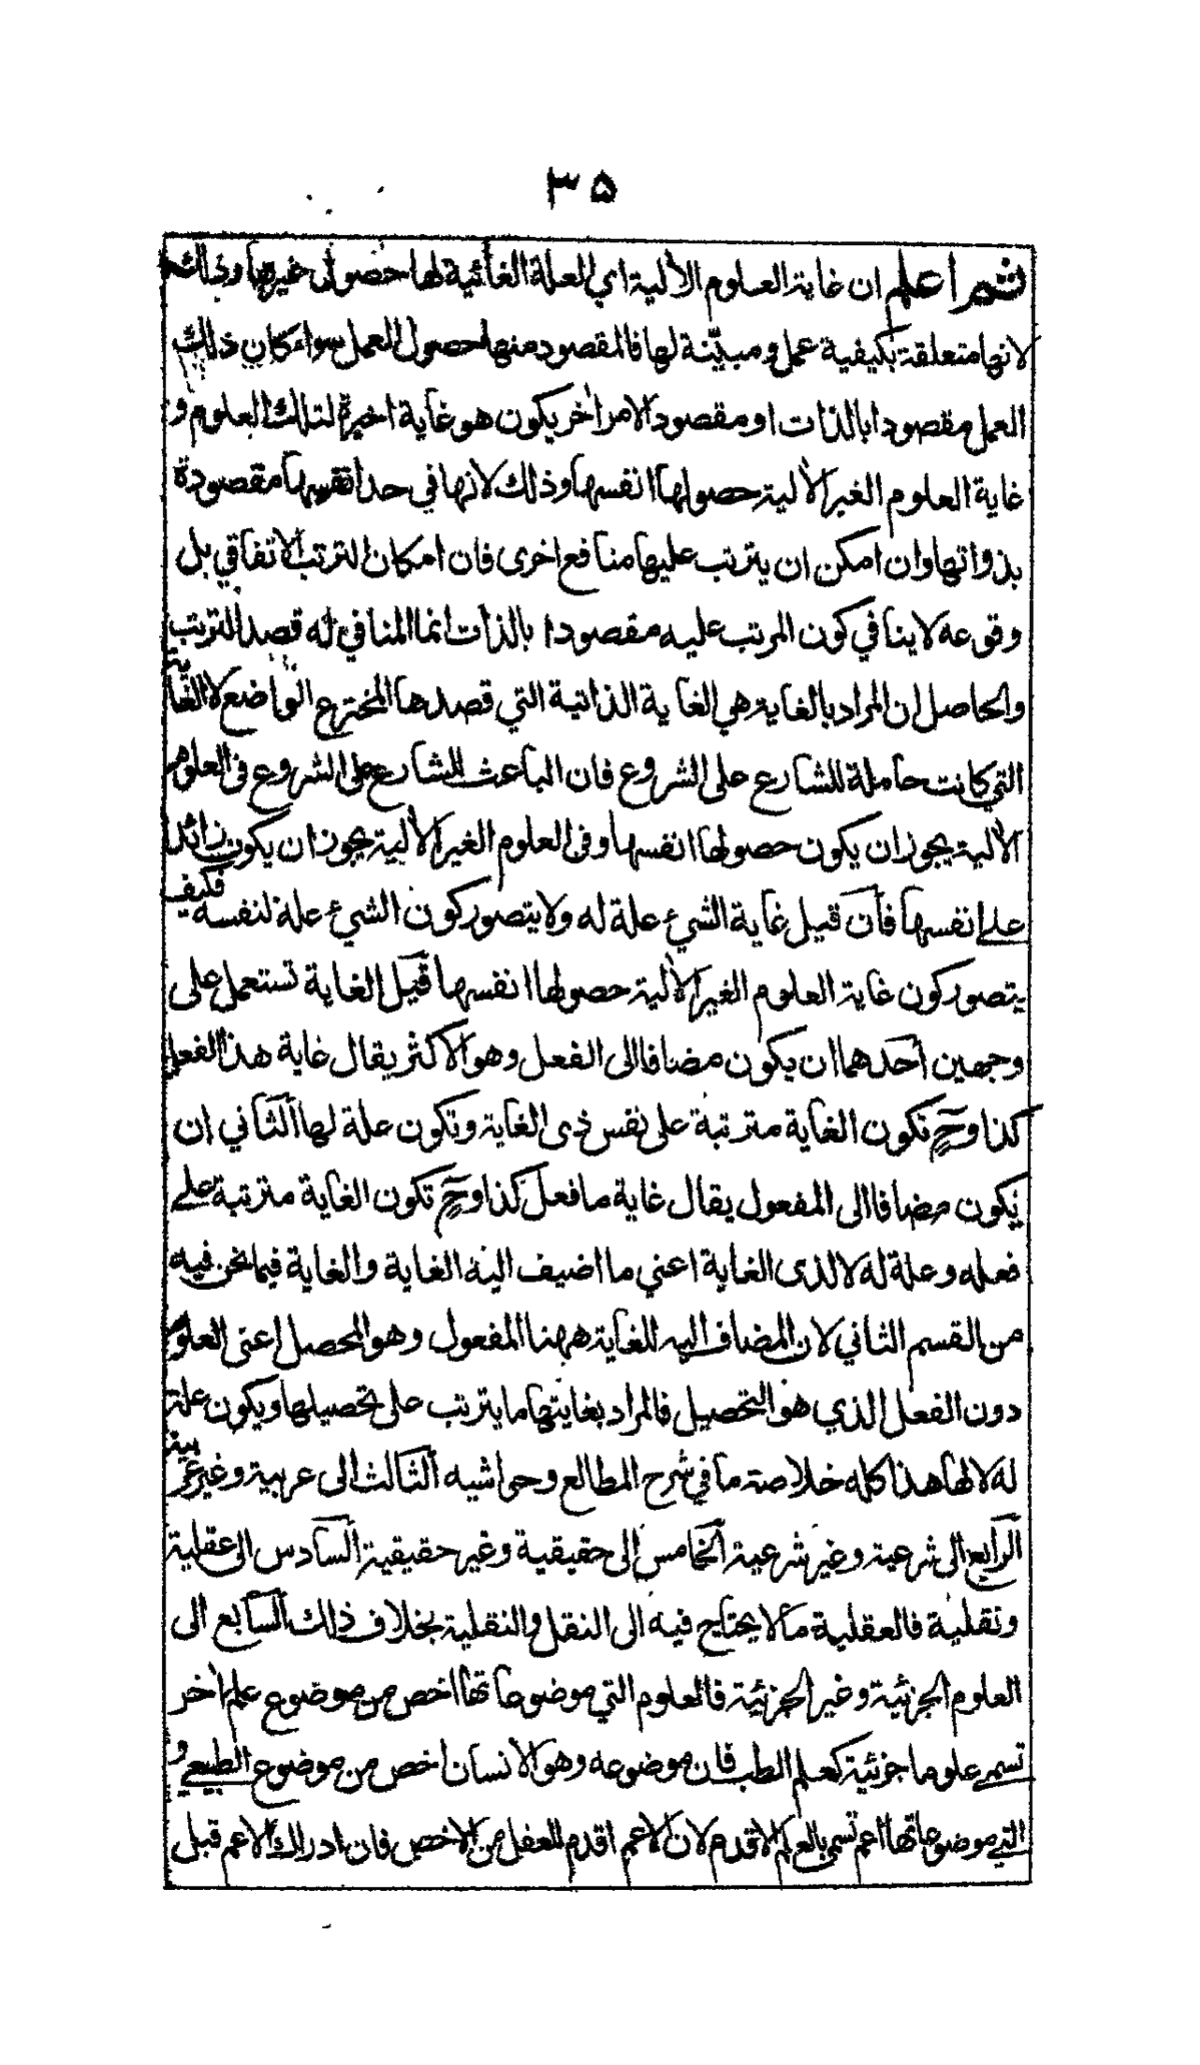 ٣٥
ثم اعلم ان غاية العلوم الآلية اي العلة الغائية لها حصول غيرها وذلك
لانها متعلقة بكيفية عمل ومبيّنة لها فالمقصود منها حصول العمل سواء كان ذلك
العمل مقصودا بالذات او مقصودا لامر آخر يكون هو غاية اخيرة لتلك العلوم و
غاية العلوم الغير الآلية حصولها انفسها وذلك لانها في حد انفسها مقصودة
بذواتها وان امكن ان يترتب عليها منافع اخرى فان امكان الترتب الاتفاقي بل
وقوعه لا ينافي كون المرتب عليه مقصودا بالذات انما المنافي له قصد الترتب
والحاصل ان المراد بالغاية هي الغاية الذاتية التي قصدها المخترع الواضع لا الغاية
التي كانت حاملة للشارع على الشروع فان الباعث للشارع على الشروع فى العلوم
الآلية يجوز ان يكون حصولها انفسها وفى العلوم الغير الآلية يجوز ان يكون زائدا
على انفسها فان قيل غاية الشيء علة له ولا يتصور كون الشيء علة لنفسه فكيف
يتصور كون غاية العلوم الغير الآلية حصولها انفسها قيل الغاية تستعمل على
وجهين احدهما ان يكون مضافا الى الفعل وهو الاكثر يقال غاية هذا الفعل
كذا وحٍ تكون الغاية مترتبة على نفس ذى الغاية وتكون علة لها الثاني ان
يكون مضافا الى المفعول يقال غاية ما فعل كذا وحٍ تكون الغاية مترتبة على
فعله وعلة له لا لذى الغاية اعني ما اضيف اليه الغاية والغاية فيما نحن فيه
من القسم الثاني لان المضاف اليه للغاية ههنا المفعول وهو المحصل اعنى العلوم
دون الفعل الذي هو التحصيل فالمراد بغايتها ما يترتب على تحصيلها ويكون علة
له لا لها هذا كله خلاصة ما في شرح المطالع وحواشيه الثالث الى عربية وغير عربية
الرابع الى شرعية وغير شرعية الخامس الى حقيقية وغير حقيقية السادس الى عقلية
ونقلية فالعقلية ما لا يحتاج فيه الى النقل والنقلية بخلاف ذلك السابع الى
العلوم الجزئية وغير الجزئية فالعلوم التي موضوعاتها اخص من موضوع علم آخر
تسمى علوما جزئية كعلم الطب فان موضوعه وهو الانسان اخص من موضوع الطبيعي و
التي موضوعاتها اعم تسمى بالعلم الاقدم لان الاعم اقدم للعقل من الاخص فان ادراك الاعم قبل